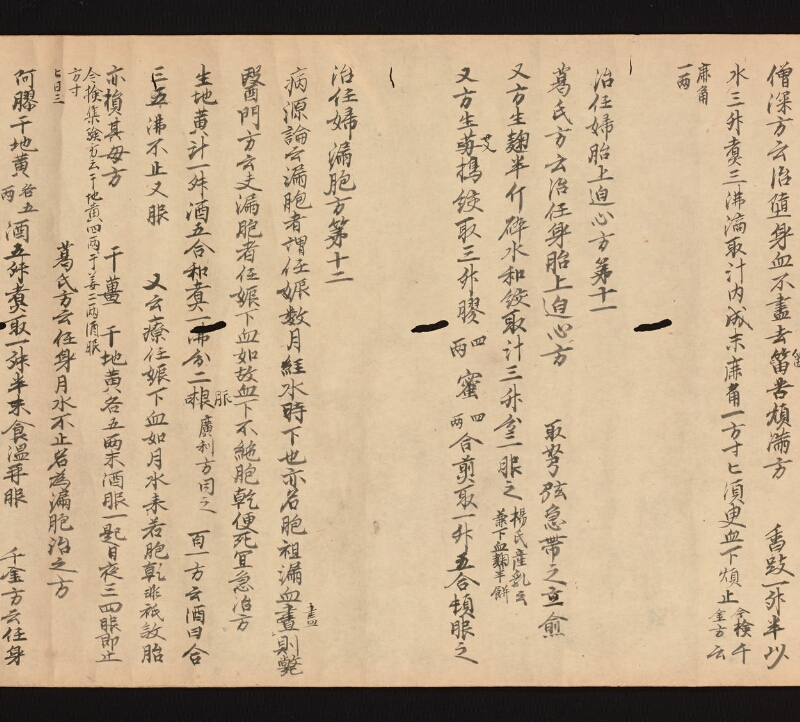 僧深方云治墮身血不盡去留苦煩滿方　香豉一升半以
水三升煮三沸漓取汁內成末鹿角一方寸匕須臾血下煩止今検千金方云
鹿角一兩
治任婦胎上迫心方第十一
葛氏方云治任身胎上迫心方　取弩弦急帶之立愈
又方生麴半斤碎水和絞取汁三升分二服之楊氏產乳云兼下血麴半餅
又方生艾搗絞取三升膠四兩蜜四兩合煎取一升五合頓服之
治任婦漏胞方第十二
病源論云漏胞者謂任娠數月經水時下也亦名胞祖漏血盡則斃
醫門方云夫漏胞者任娠下血如故血下不絕胞乾便死宜急治方
生地黃汁一升酒五合和煮一沸分二服廣利方同之　百一方云酒四合
三五沸不止又服　又云療任娠下血如月水来若胞乾非祇敘胎
亦損其母方　干薑　干地黃各五兩末酒服一匙日夜三四服即止
今検集験方云干地黃四兩干姜二兩酒服方寸匕日三
葛氏方云任身月水不止名為漏胞治之方
阿膠干地黃各五兩酒五升煮取一升半未食溫再服　千金方云任身